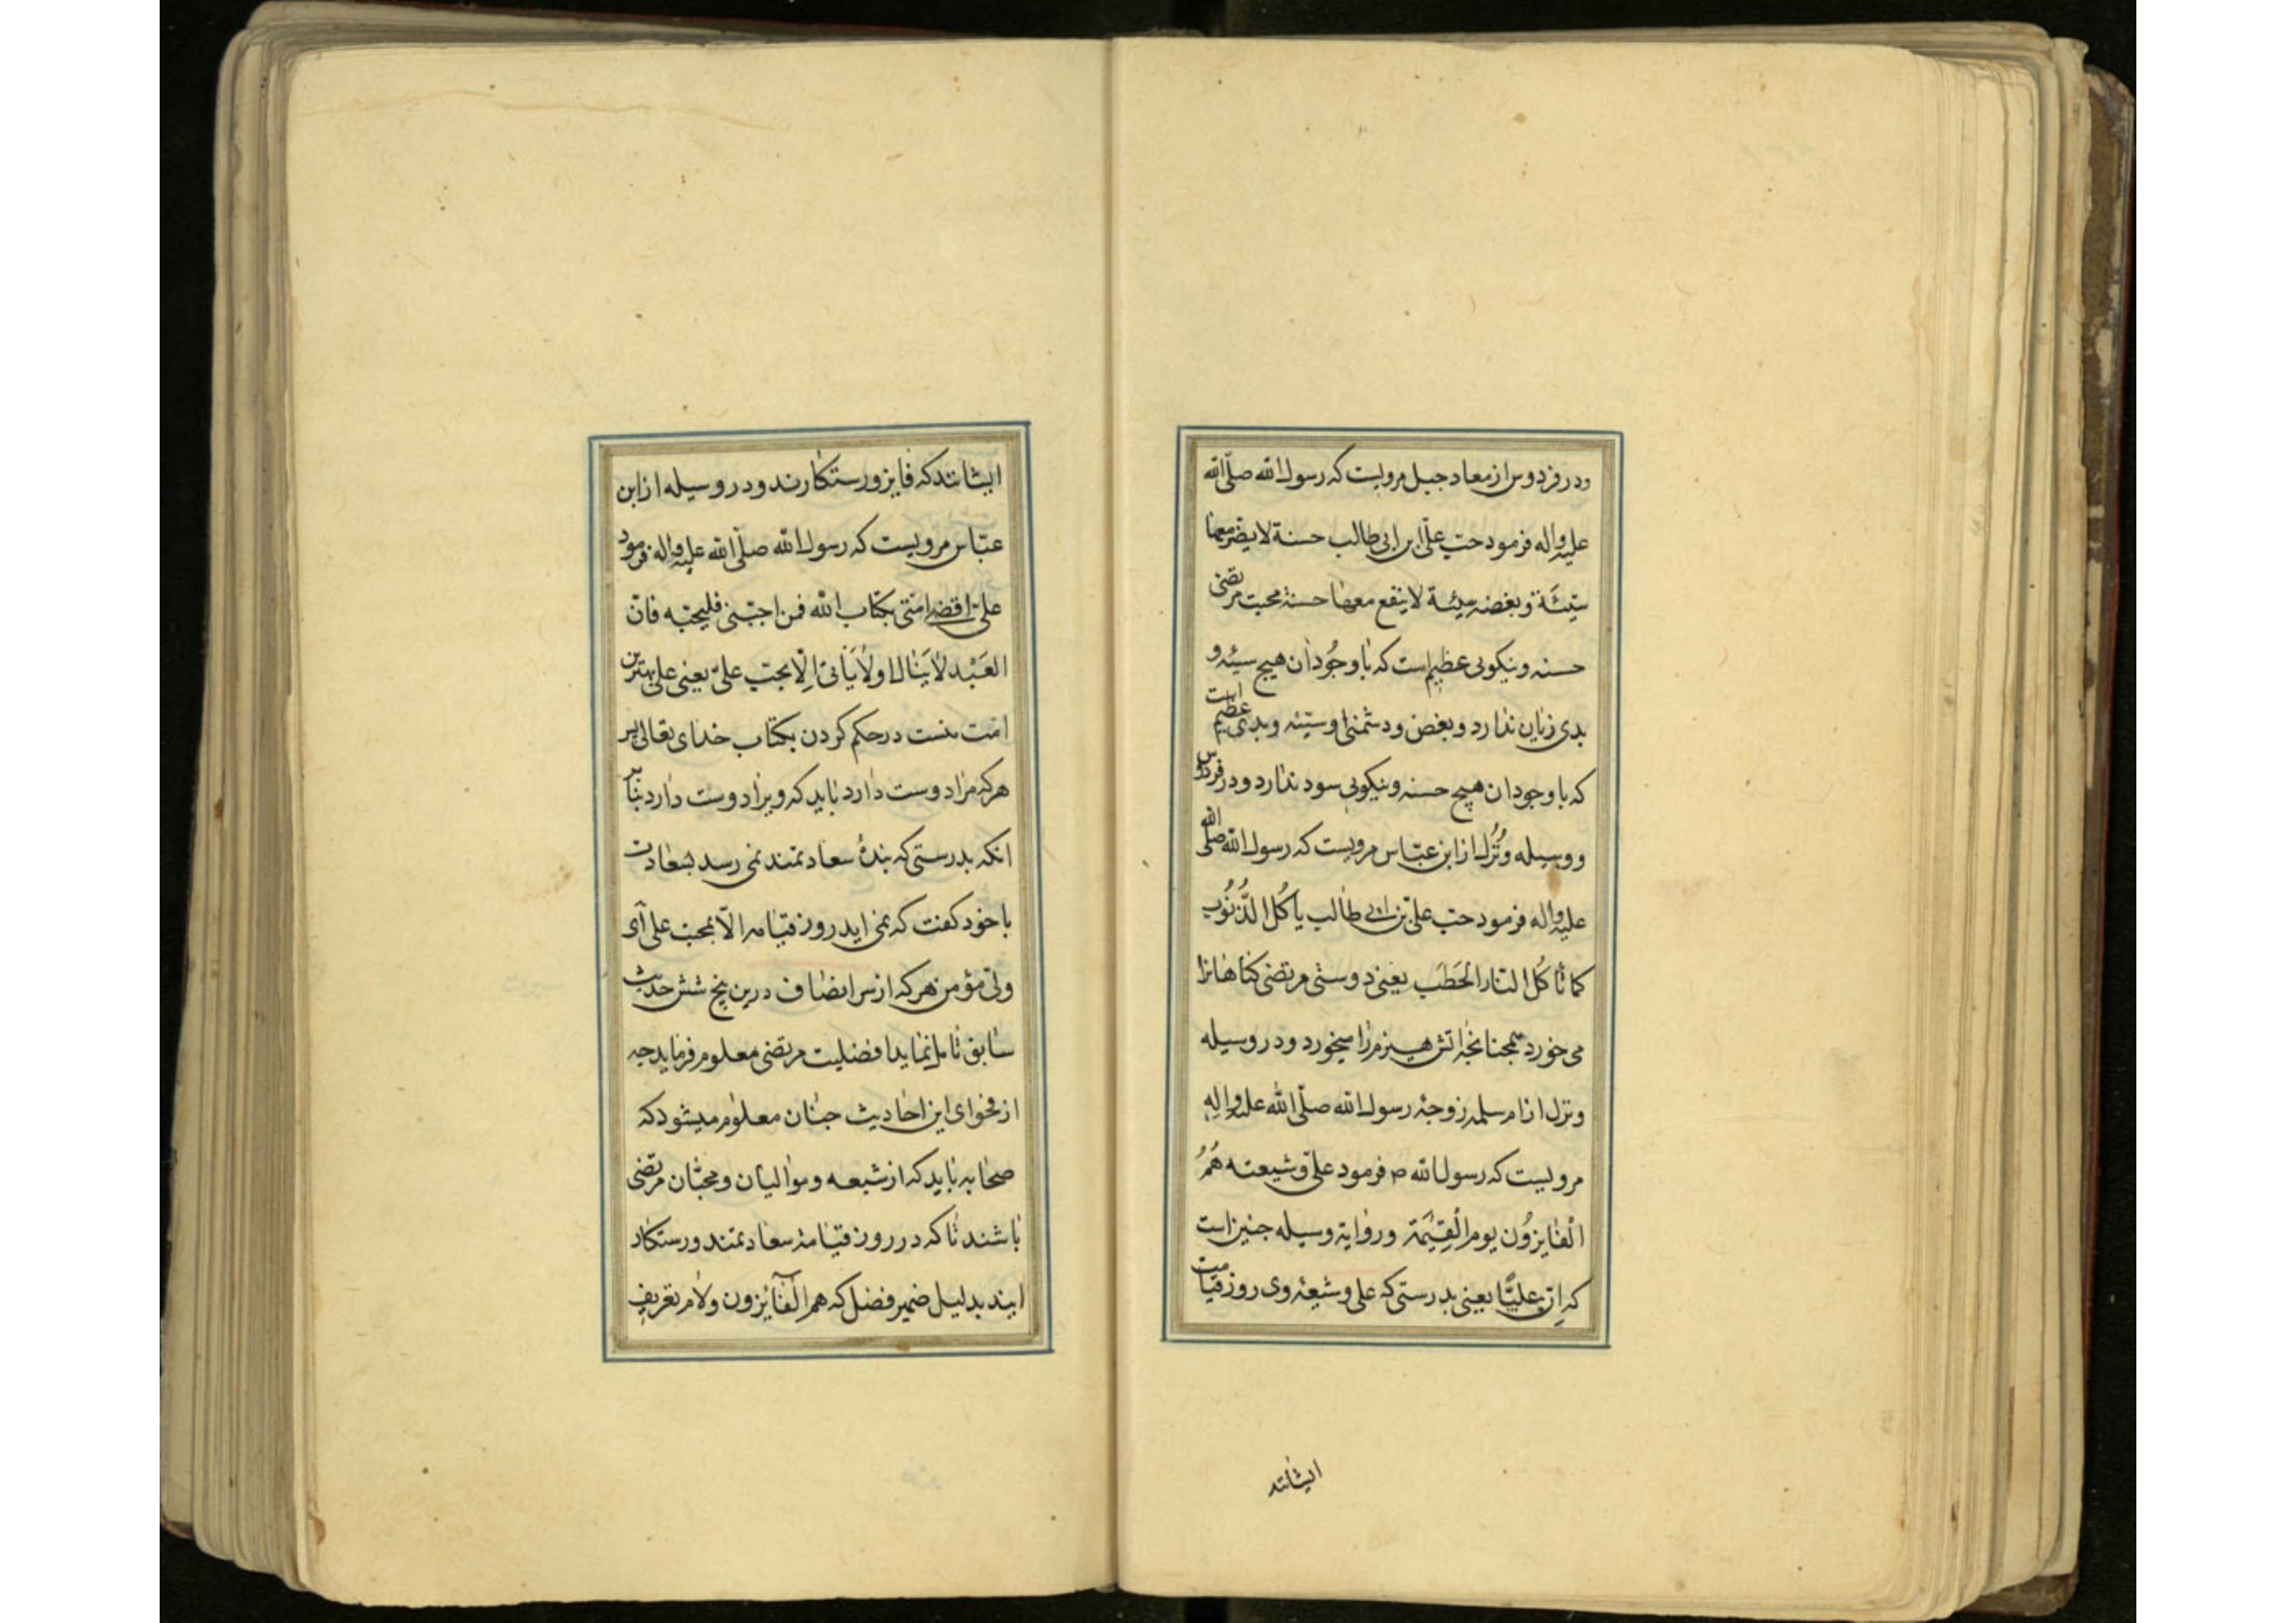 ودر فردوس از معاد جبل مرویست که رسول الله صلّی الله
علیه واله فرمود حبّ علیّ ابن ابی طالب حسنة لا یضرّ معها
سیّئة وبغضه سیئة لا ینفع معها حسنة محبت مرتضی
حسنه ونیکویی عظیم است که با وجُود آن هیچ سیئه و
بدی زیان ندارد وبغض ودشمنی او سیّئه وبدی عظیم است
که با وجود ان هیچ حسنه ونیکویی سود ندارد ودر فردوس
ووسیله ونُزُل از ابن عبّاس مرویست که رسول الله صلی الله
علیه واله فرمود حبّ علیّ بن ابی طالب یأکُل الذُّنُوب
کما تأکُل النّار الحَطَب یعنی دوستی مرتضی کناهانرا
می خورد همجنانجه اتش هیزم را میخورد ودر وسیله
ونزل از ام سلمه زوجهٔ رسول الله صلّی الله علیه واله
مرویست که رسول الله ص فرمود علیّ وشیعته هُمُ
الْفایزُون یوم الْقِیٰمَة وروایة وسیله جنین است
که اِنّ علیّاً یعنی بدرستی که علی وشیعهٔ وی روز قیامت
ایشانند
ایشانند که فایز ورستکارند ودر وسیله از ابن
عبّاس مرویست که رسول الله صلّی الله علیه واله فرمود
علیّ اقضی امّتی بکتاب الله فمن احبّنی فلیحبّه فانّ
العَبْد لا یَنال ولایَتی اِلّا بحبّ علیّ یعنی علی بهترین
امّت منست در حکم کردن بکتاب خدای تعالی پس
هرکه مرا دوست دارد باید که ویرا دوست دارد بنابر
انکه بدرستی که بندهٔ سعادتمند نمی رسد بسعادت
با خود کفت که نمی اید روز قیامه الّا بمحبّ علی آی
ولیّ مؤمن هرکه از سر انصاف درین پنج شش حدیث
سابق تامل نماید افضلیت مرتضی معلوم فرماید جه
از فحوای این احادیث جنان معلوم میشود که
صحابه باید که از شیعه وموالیان ومحبّان مرتضی
باشند تا که در روز قیامه سعادتمند ورستکار
ایند بدلیل ضمیر فصل که هم الْفآئزون ولام تعریف